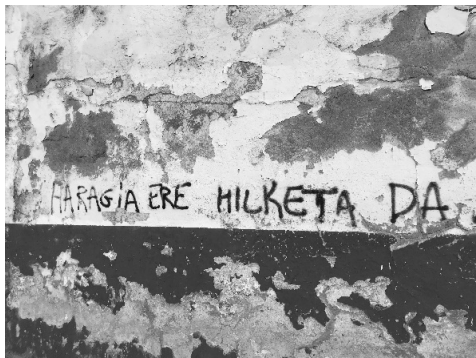 HARAGiA ERE HILKETA DA